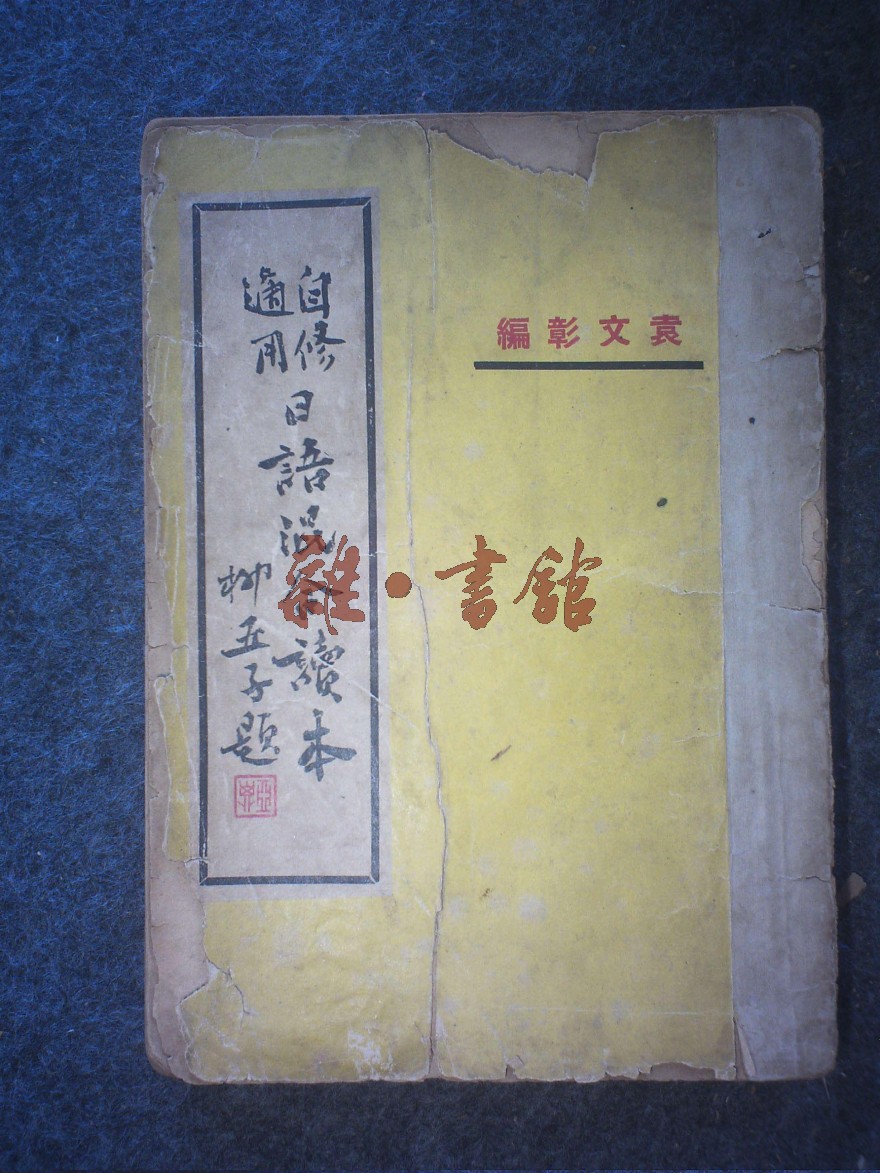 袁文彰編
自修
適用
日語讀本
柳亞子題
雜·書館